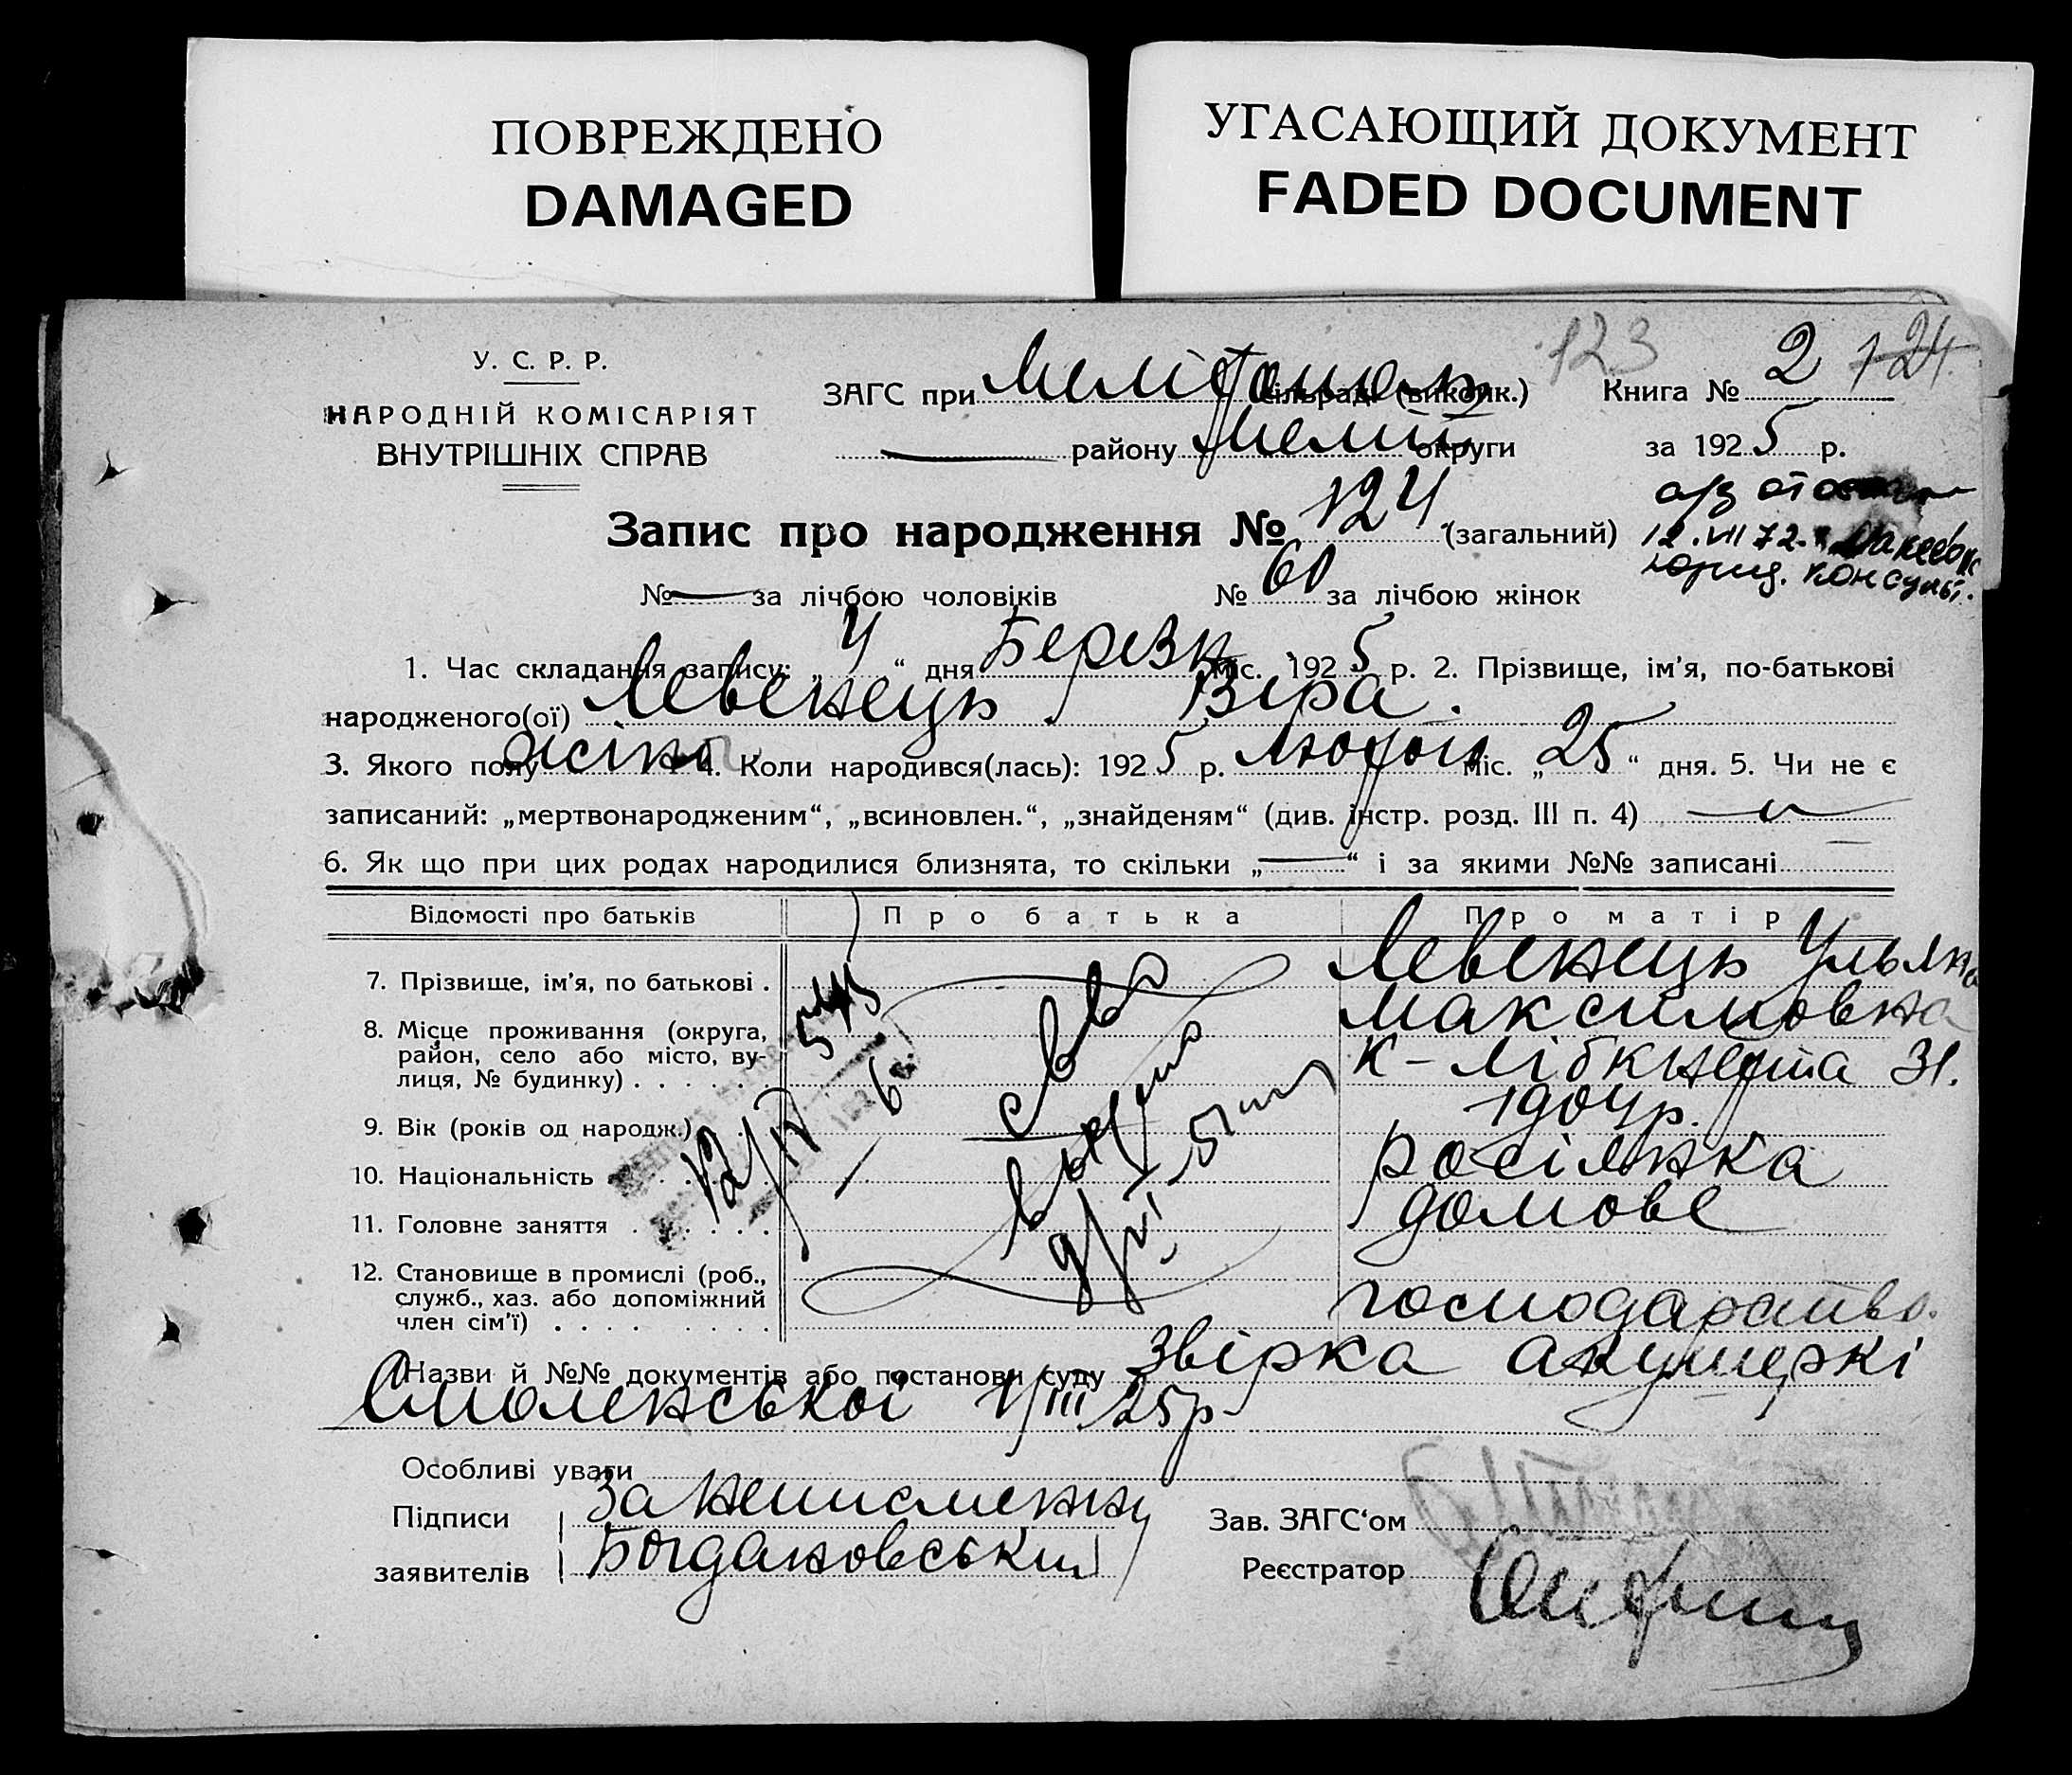 ПОВРЕЖДЕНО
DAMAGED
УГАСАЮЩИЙ ДОКУМЕНТ
FADED DOCUMENT
123
У. С. Р. Р.
НАРОДНІЙ КОМІСАРІЯТ
ВНУТРІШНІХ СПРАВ
ЗАГС при Мелітополь сільраді (виконк.)
Книга № 2 124
району Меліт округи
за 1925 р.
Запис про народження № 124 (загальний)
12.VII 72.
юрид. консульт.
№ — за лічбою чоловіків № 60 за лічбою жінок
1. Час складання запису: „ 4 “ дня Березня міс. 1925 р. 2. Прізвище, ім’я, по-батькові
народженого(ої) Левенець Віра.
3. Якого полу жіно 4. Коли народився(лась): 1925 р. Лютого міс. „ 25 “ дня. 5. Чи не є
записаний: „мертвонародженим“, „всиновлен.“, „знайденям“ (див. інстр. розд. III п. 4)
6. Як що при цих родах народилися близнята, то скільки „ — “ і за якими №№ записані
Відомості про батьків Про батька Про матір
7. Прізвище, ім’я, по батькові . Левенець Ульяна
Максимовна
8. Місце проживання (округа,
район, село або місто, ву-
лиця, № будинку) . . . . . .
К-Лібкнехта 31.
9. Вік (років од народж.) 1904р.
10. Національність росіянка
11. Головне заняття . . . . . . домове
12. Становище в промислі (роб.,
служб., хаз. або допоміжний
член сім’ї) . . . . . . . . .
господарство.
Назви й №№ документів або постанови суду Звірка акушеркі
Смоленської 1/III 25р
Особливі уваги
Підписи За неписменну
заявителів Богдановський
Зав. ЗАГС‘ом
Реєстратор